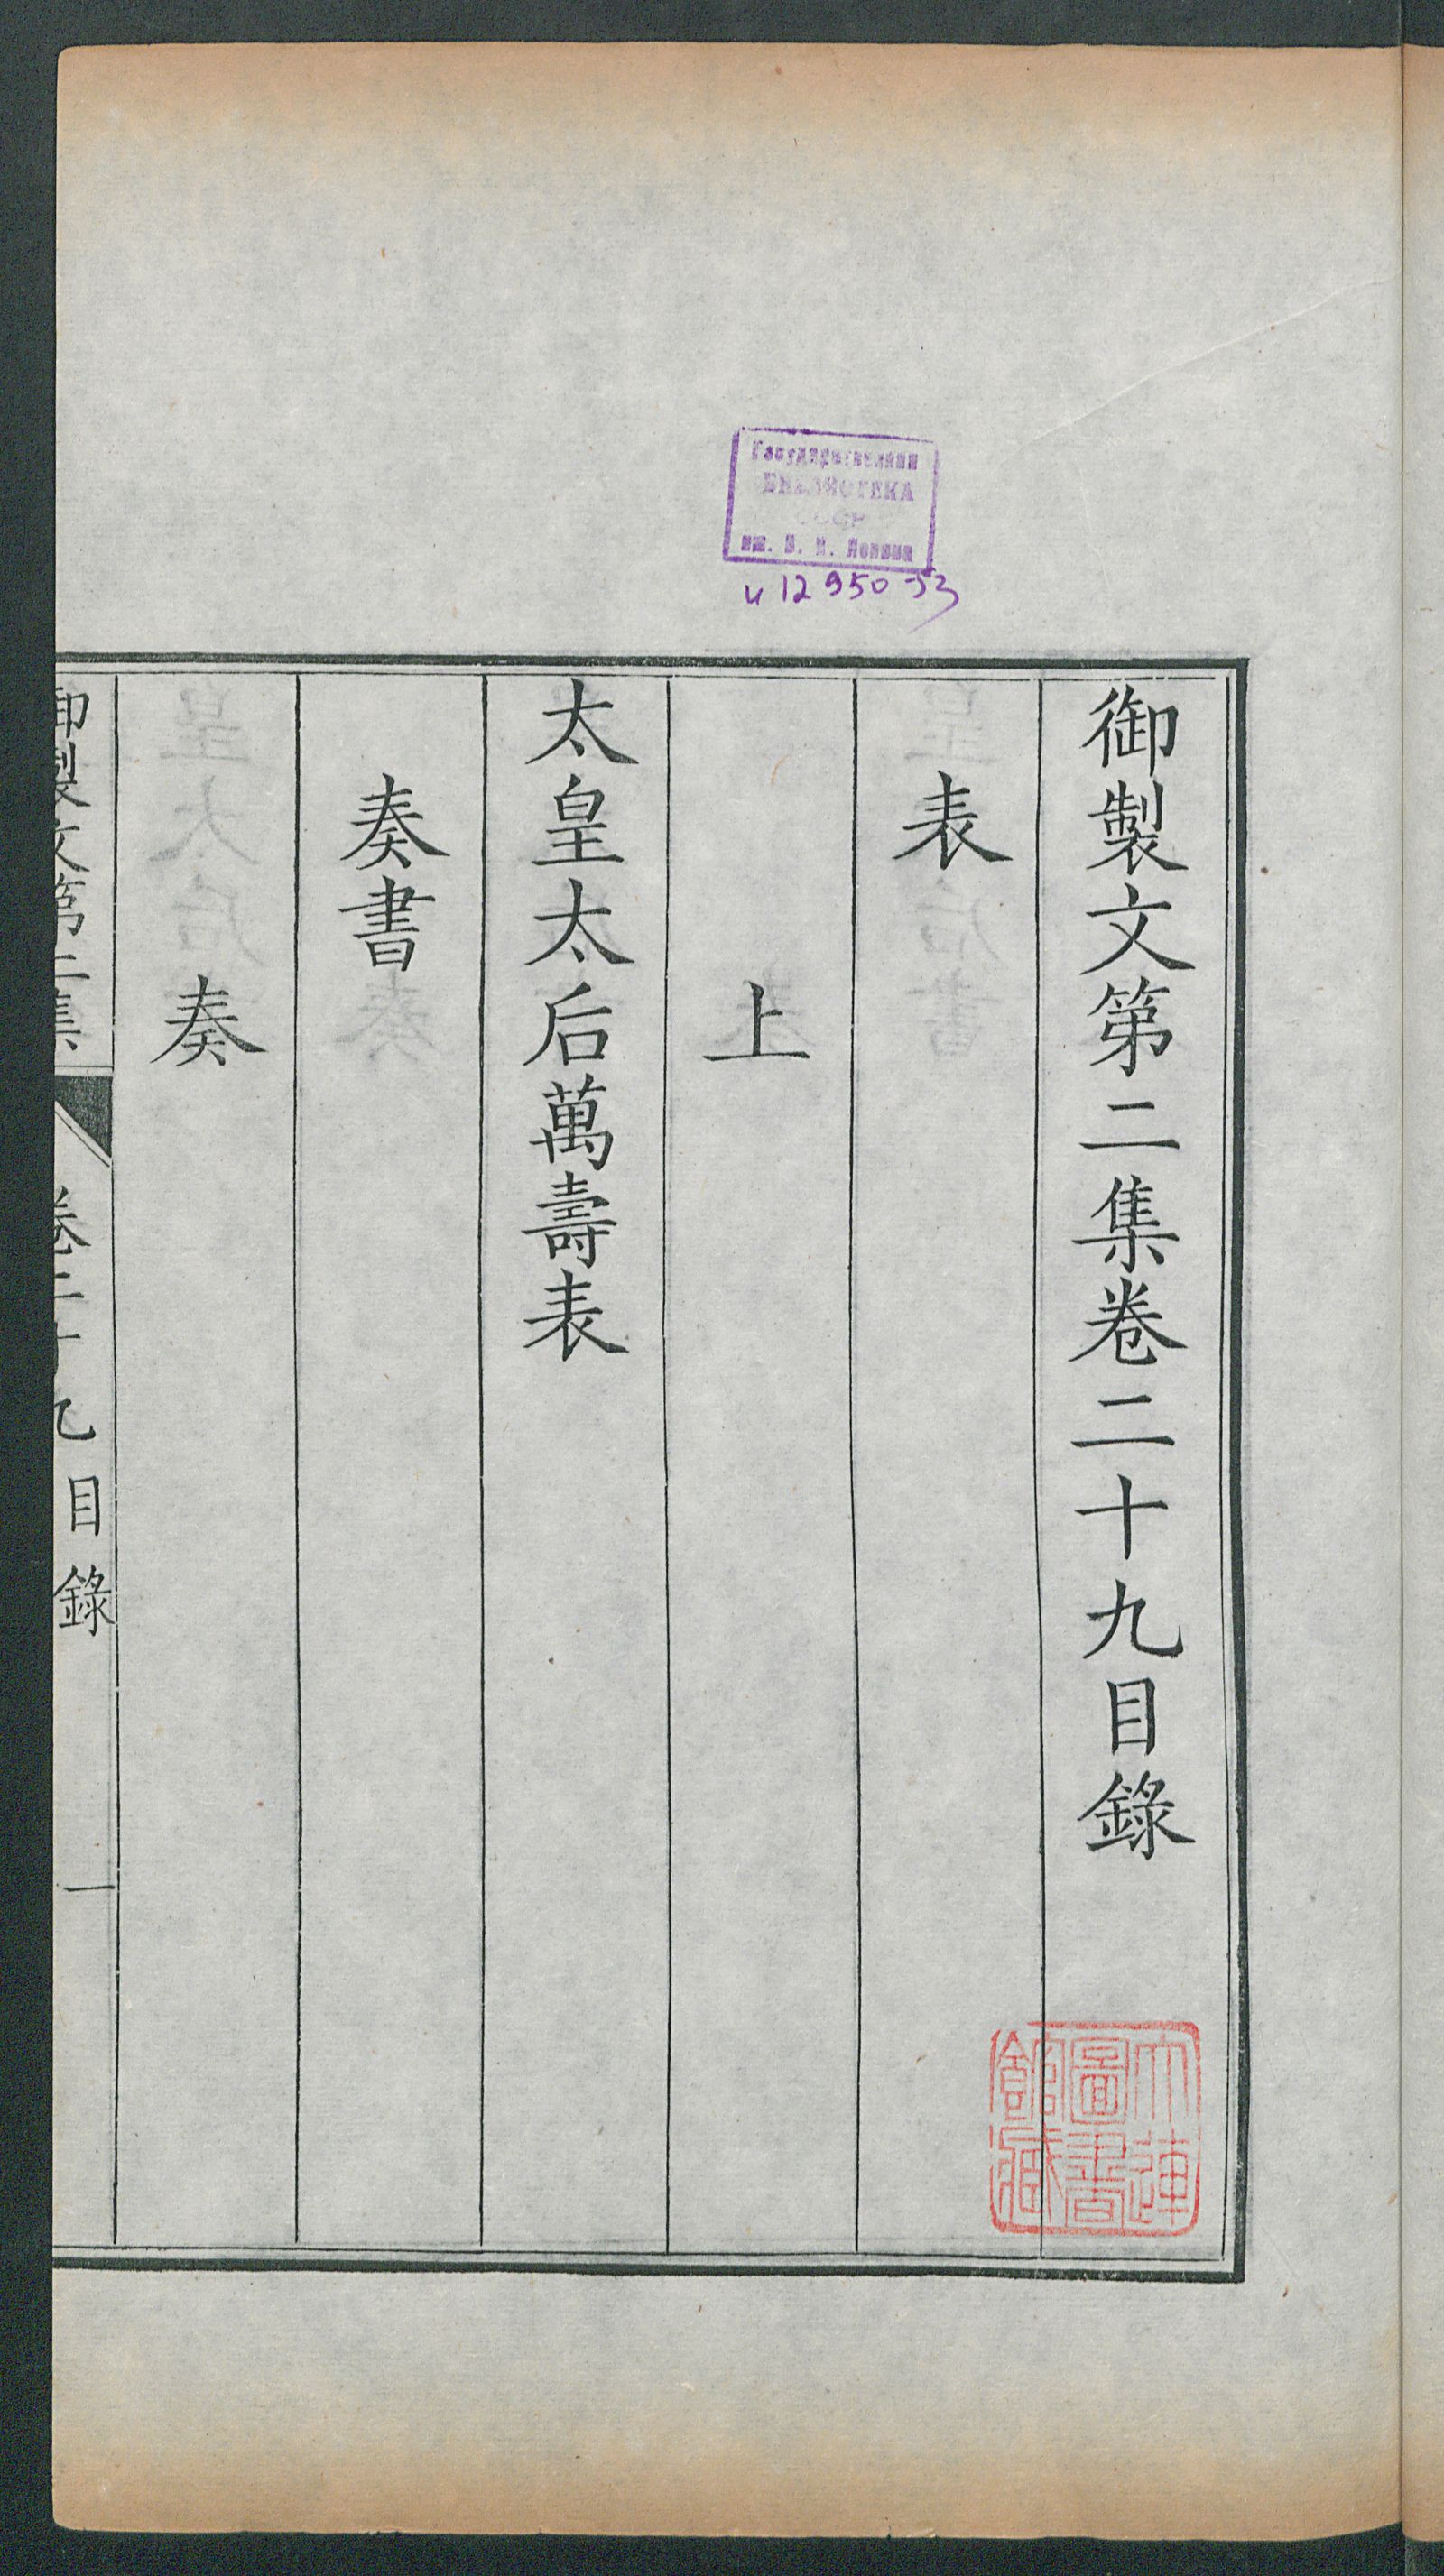 Государственная
БИБЛИОТЕКА
СССР
им. В. И. Ленина
и 12950-53
御製文第二集卷二十九目錄
表
上
太皇太后萬壽表
奏書
奏
御製文第二集
卷二十九目錄
一
大連
圖書
館藏